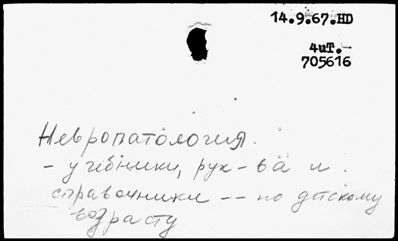 14.9.67.HD
4иТ.-
705616
Невропатология.
- учебники, рук-ва и
справочники -- по детскому
возрасту